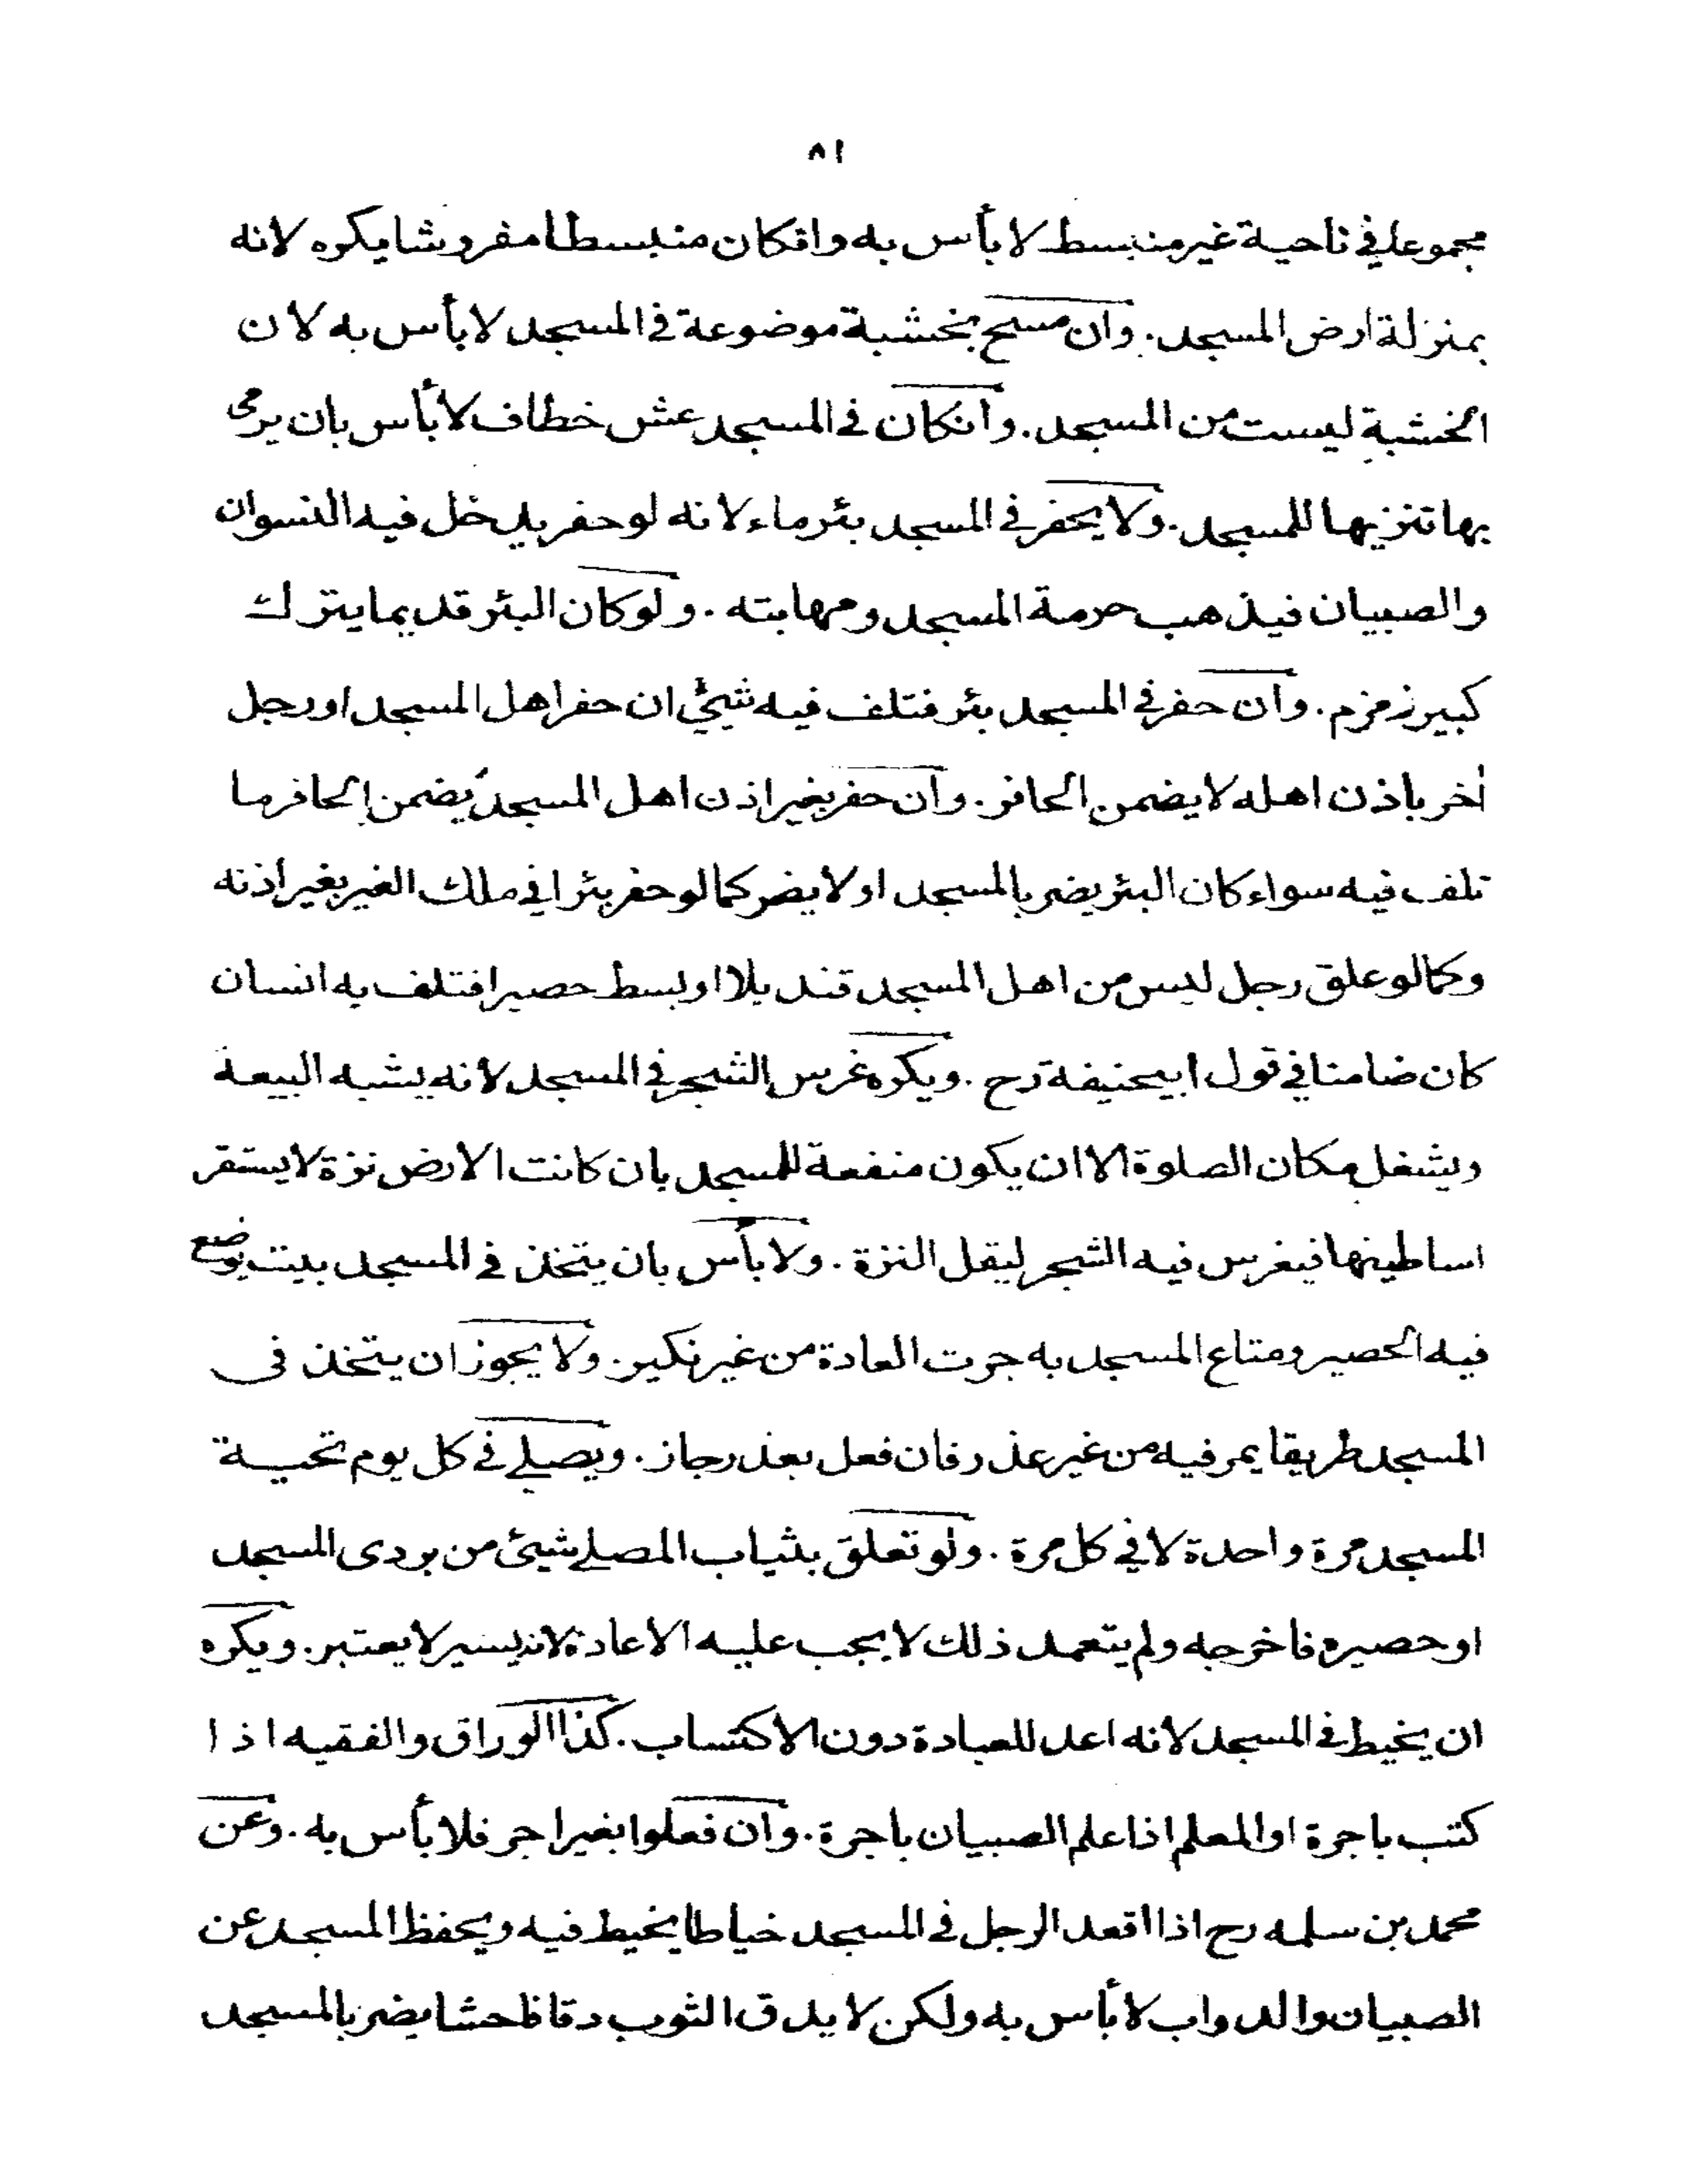 ٨١
مجموعا في ناحية غير منبسط لا بأس به وانكان منبسطا مفروشا يكره لانه
بمنزلة ارض المسجد. وان مسح بخشبة موضوعة في المسجد لا بأس به لان
الخشبة ليست من المسجد. وانكان في المسجد عش خطاف لا بأس بان يرمى
بها تنزيها للمسجد. ولا يحفر في المسجد بئر ماء لانه لو حفر يدخل فيه النسوان
والصبيان فيذهب حرمة المسجد ومهابته. ولو كان البئر قديما يترك
كبير زمزم. وان حفر في المسجد بئر فتلف فيه شيئ ان حفر اهل المسجد او رجل
أخر باذن اهله لا يضمن الحافر. وان حفر بغير اذن اهل المسجد يضمن الحافر ما
تلف فيه سواء كان البئر يضر بالمسجد او لا يضر كما لو حفر بئرا في ملك الغير بغير اذنه
وكما لو علق رجل ليس من اهل المسجد قنديلا او بسط حصيرا فتلف به انسان
كان ضامنا في قول ابيحنيفة رح. ويكره غرس الشجر في المسجد لانه يشبه البيعة
ويشغل مكان الصلوة الا ان يكون منفعة للمسجد بان كانت الارض نزة لا يستقر
اساطينها فيغرس فيه الشجر ليقل النزة. ولا بأس بان يتخذ في المسجد بيت يوضع
فيه الحصير ومتاع المسجد به جرت العادة من غير نكير. ولا يجوز ان يتخذ فى
المسجد طريقا يمر فيه من غير عذر فان فعل بعذر جاز. ويصلے في كل يوم تحية
المسجد مرة واحدة لا في كل مرة. ولو تعلق بثياب المصلے شيئ من بردى المسجد
او حصيره فاخرجه ولم يتعمد ذلك لا يجب عليه الاعادة لانه يسير لا يعتبر. ويكره
ان يخيط في المسجد لانه اعد للعبادة دون الاكتساب. كذا الوراق والفقيه اذا
كتب باجرة او المعلم اذا علم الصبيان باجرة. وان فعلوا بغير اجر فلا بأس به. وعن
محمد بن سلمه رح اذا اقعد الرجل في المسجد خياطا يخيط فيه ويحفظ المسجد عن
الصبيان والدواب لا بأس به ولكن لا يدق الثوب دقا فاحشا يضر بالمسجد